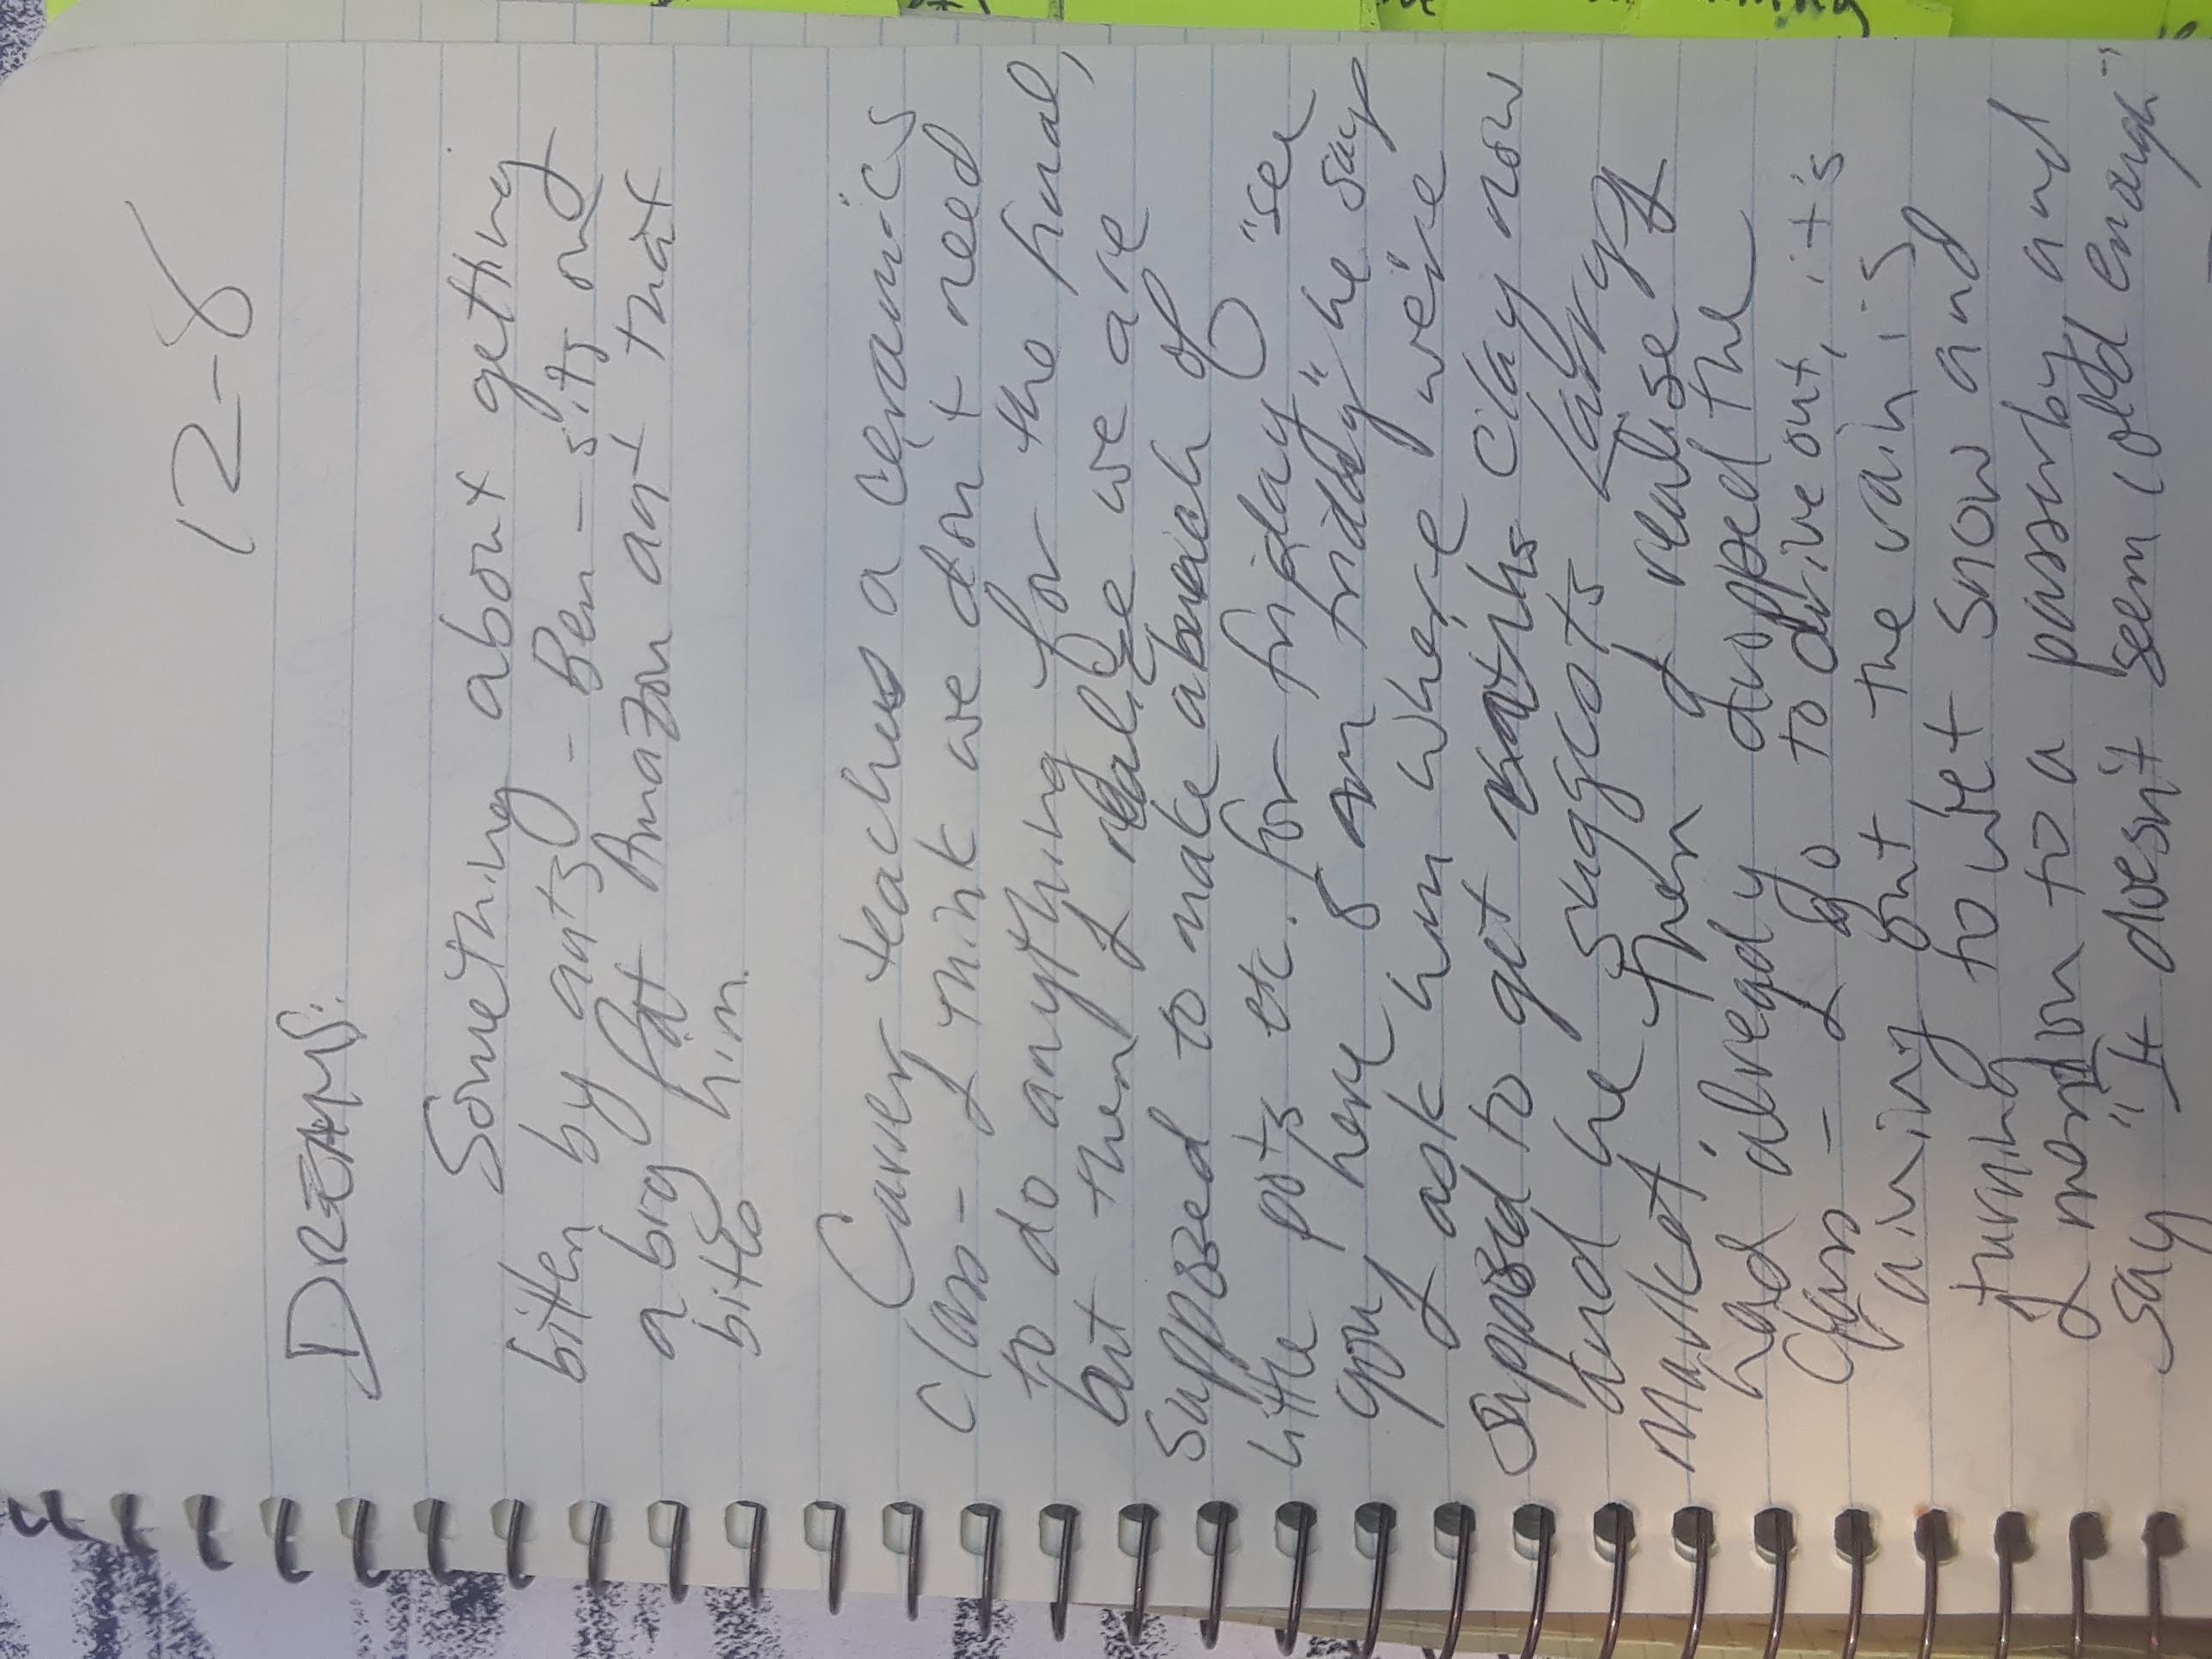 12-8
DREAMS:
Something about getting
bitten by ants - Ben - sits ong
a big fat Amazon ant that
bites him.
Carver teaches a ceramics
class - I think we don't need
to do anything for the final,
but then I realize we are
supposed to make abunch of
little pots etc. for friday "see
you here 8 am friday" he says
I ask him where we're
supposed to get clay now
and he suggests
Market then I realise I
had already dropped the
class - I go to drive out, it's
aining but the rain is
turning to wet snow and
I mention to a passerby and
say "It doesn't seem cold enough"